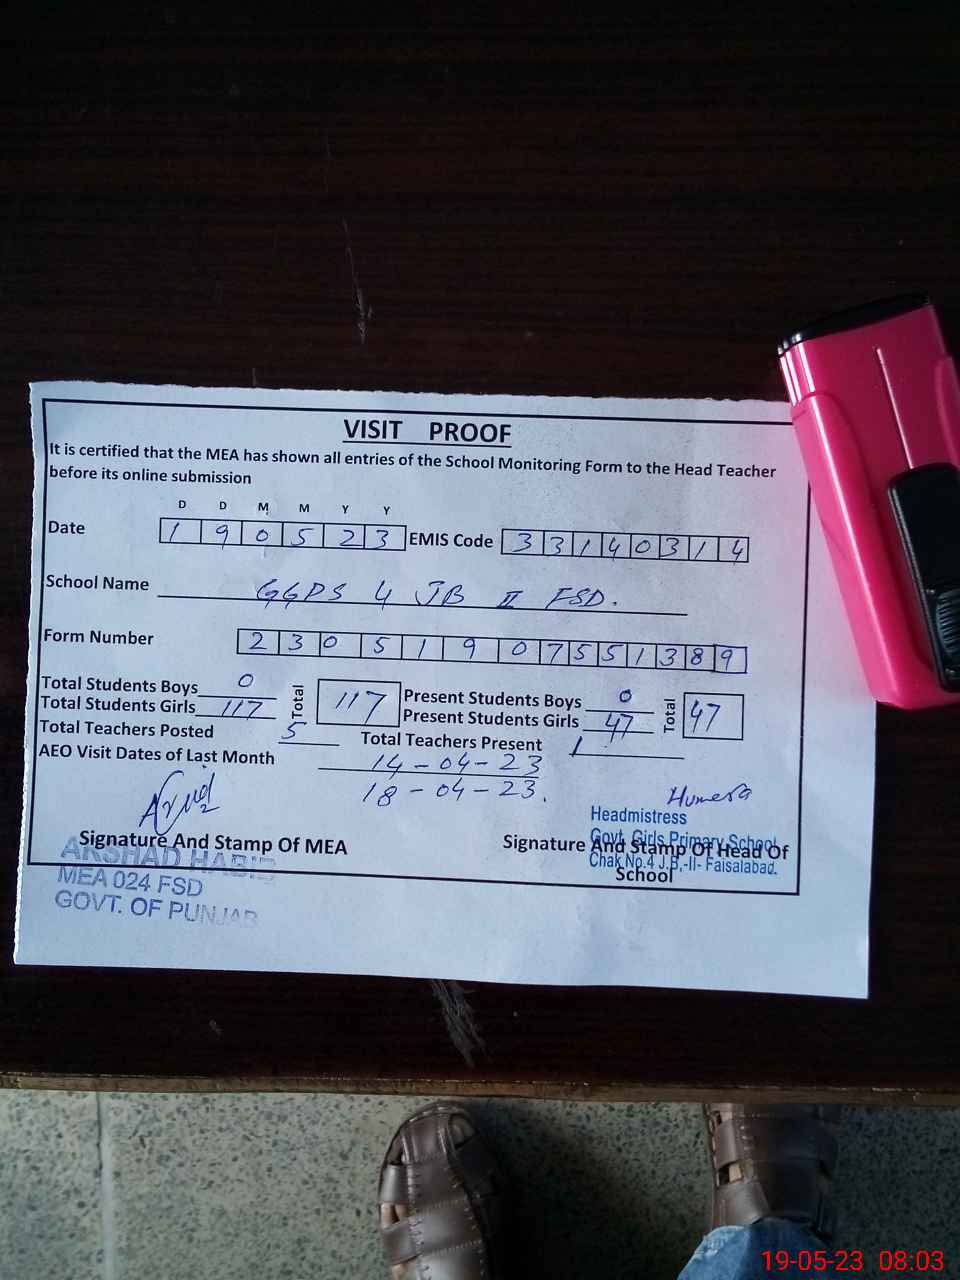 VISIT PROOF
It is certified that the MEA has shown all entries of the School Monitoring Form to the Head Teacher
before its online submission
D D M M Y Y
Date 1 9 0 5 2 3 EMIS Code 3 3 1 4 0 3 1 4
School Name GGPS 4 JB II FSD.
Form Number 2 3 0 5 1 9 0 7 5 5 1 3 8 9
Total Students Boys 0 Total 117 Present Students Boys 0 Total 47
Total Students Girls 117 Present Students Girls 47
Total Teachers Posted 5 Total Teachers Present 1
AEO Visit Dates of Last Month 14-04-23
18-04-23.
Humera
Headmistress
Govt. Girls Primary School
Chak No.4 J.B,-II- Faisalabad.
Signature And Stamp Of MEA Signature And Stamp Of Head Of
School
ARSHAD HABIB
MEA 024 FSD
GOVT. OF PUNJAB
19-05-23 08:03